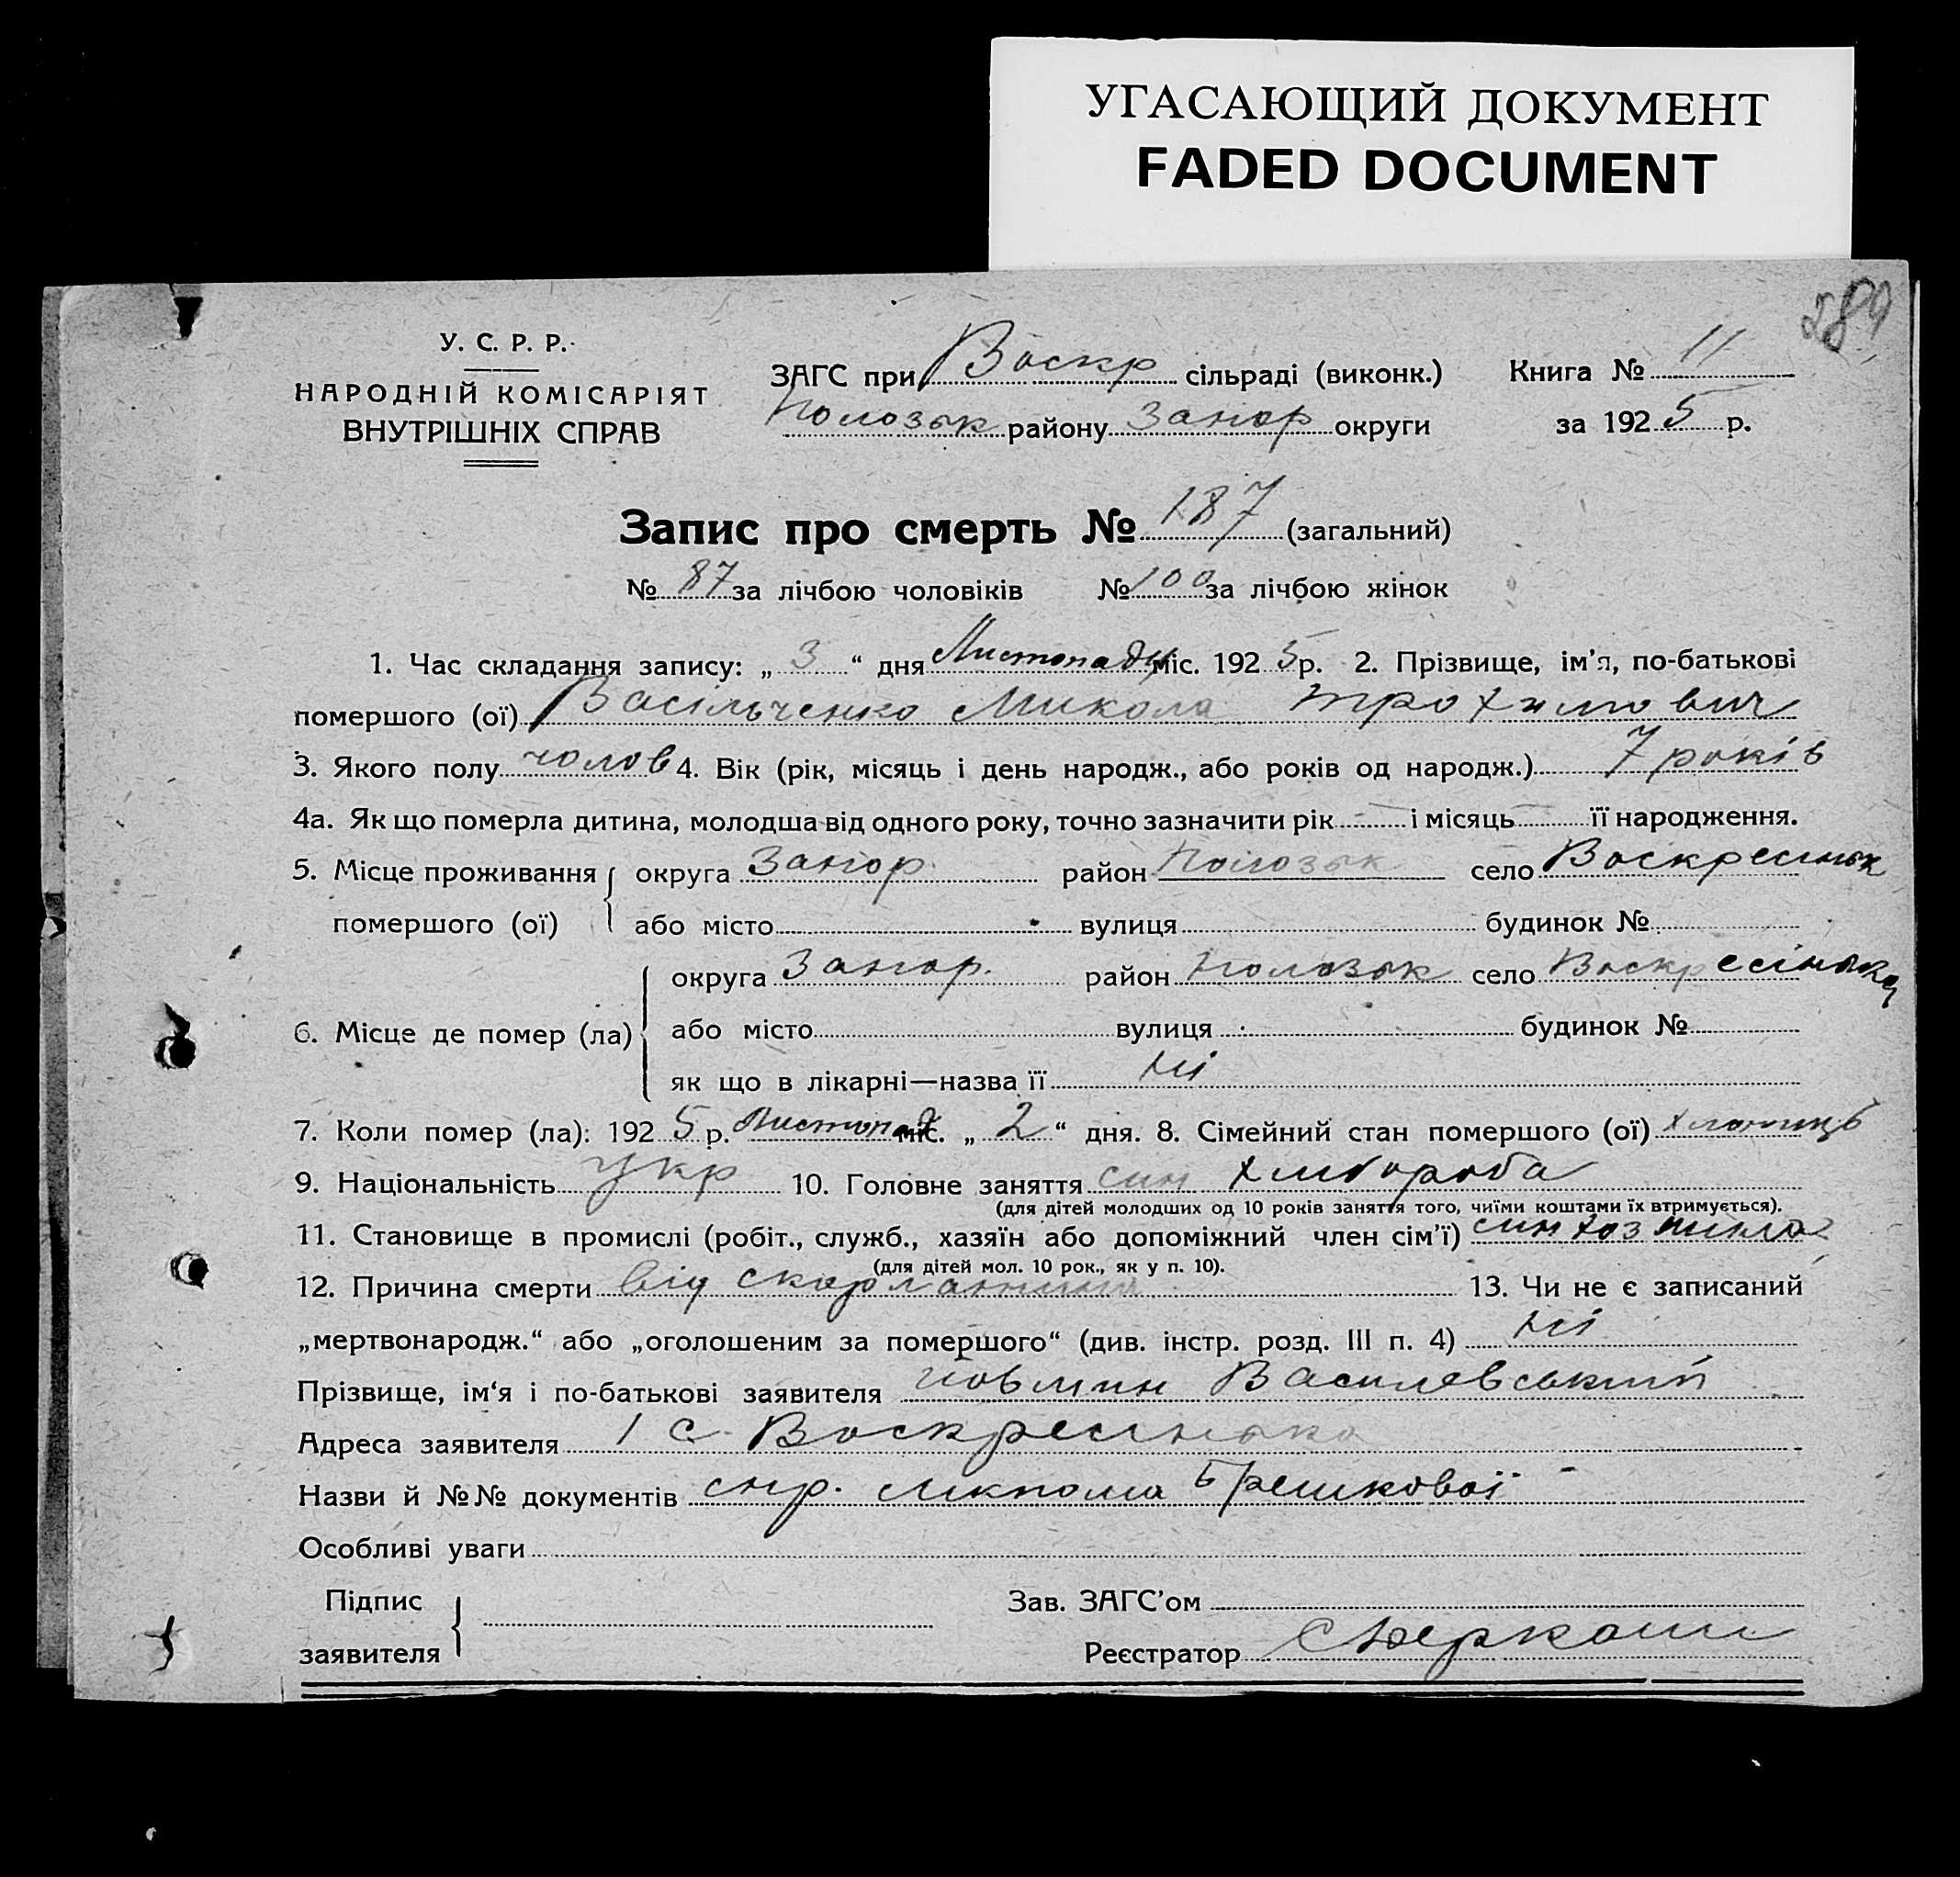 УГАСАЮЩИЙ ДОКУМЕНТ
FADED DOCUMENT
289
У. С. Р. Р.
НАРОДНІЙ КОМІСАРІЯТ
ВНУТРІШНІХ СПРАВ
ЗАГС при Воскр сільраді (виконк.)
Полозьк району Запор округи
Книга № 11
за 1925 р.
Запис про смерть № 187 (загальний)
№ 87 за лічбою чоловіків № 100 за лічбою жінок
1. Час складання запису: „ 3 “ дня Листопаду міс. 1925 р. 2. Прізвище, ім'я, по-батькові
помершого (ої) Васільченко Микола трохимович
3. Якого полу чолов 4. Вік (рік, місяць і день народж., або років од народж.) 7 років
4а. Як що померла дитина, молодша від одного року, точно зазначити рік — і місяць — її народження.
5. Місце проживання округа Запор район Полозьк село Воскресіньк
помершого (ої) або місто вулиця будинок №
округа Запор. район полозьк село Воскресінька
6. Місце де помер (ла) або місто вулиця будинок №
як що в лікарні—назва її ні
7. Коли помер (ла): 1925 р. Листопад міс. „ 2 “ дня. 8. Сімейний стан помершого (ої) хлопиць
9. Національність укр 10. Головне заняття син хлібороба
(для дітей молодших од 10 років заняття того, чиїми коштами їх втримується).
11. Становище в промислі (робіт., служб., хазяїн або допоміжний член сім'ї) син
(для дітей мол. 10 рок., як у п. 10).
12. Причина смерти від скарлатини 13. Чи не є записаний
„мертвонародж.“ або „оголошеним за помершого“ (див. інстр. розд. III п. 4) ні
Прізвище, ім‘я і по-батькові заявителя Василевський
Адреса заявителя с. Воскресінька
Назви й №№ документів спр. лікпома Брешкової
Особливі уваги
Підпис
заявителя
Зав. ЗАГС'ом
Реєстратор